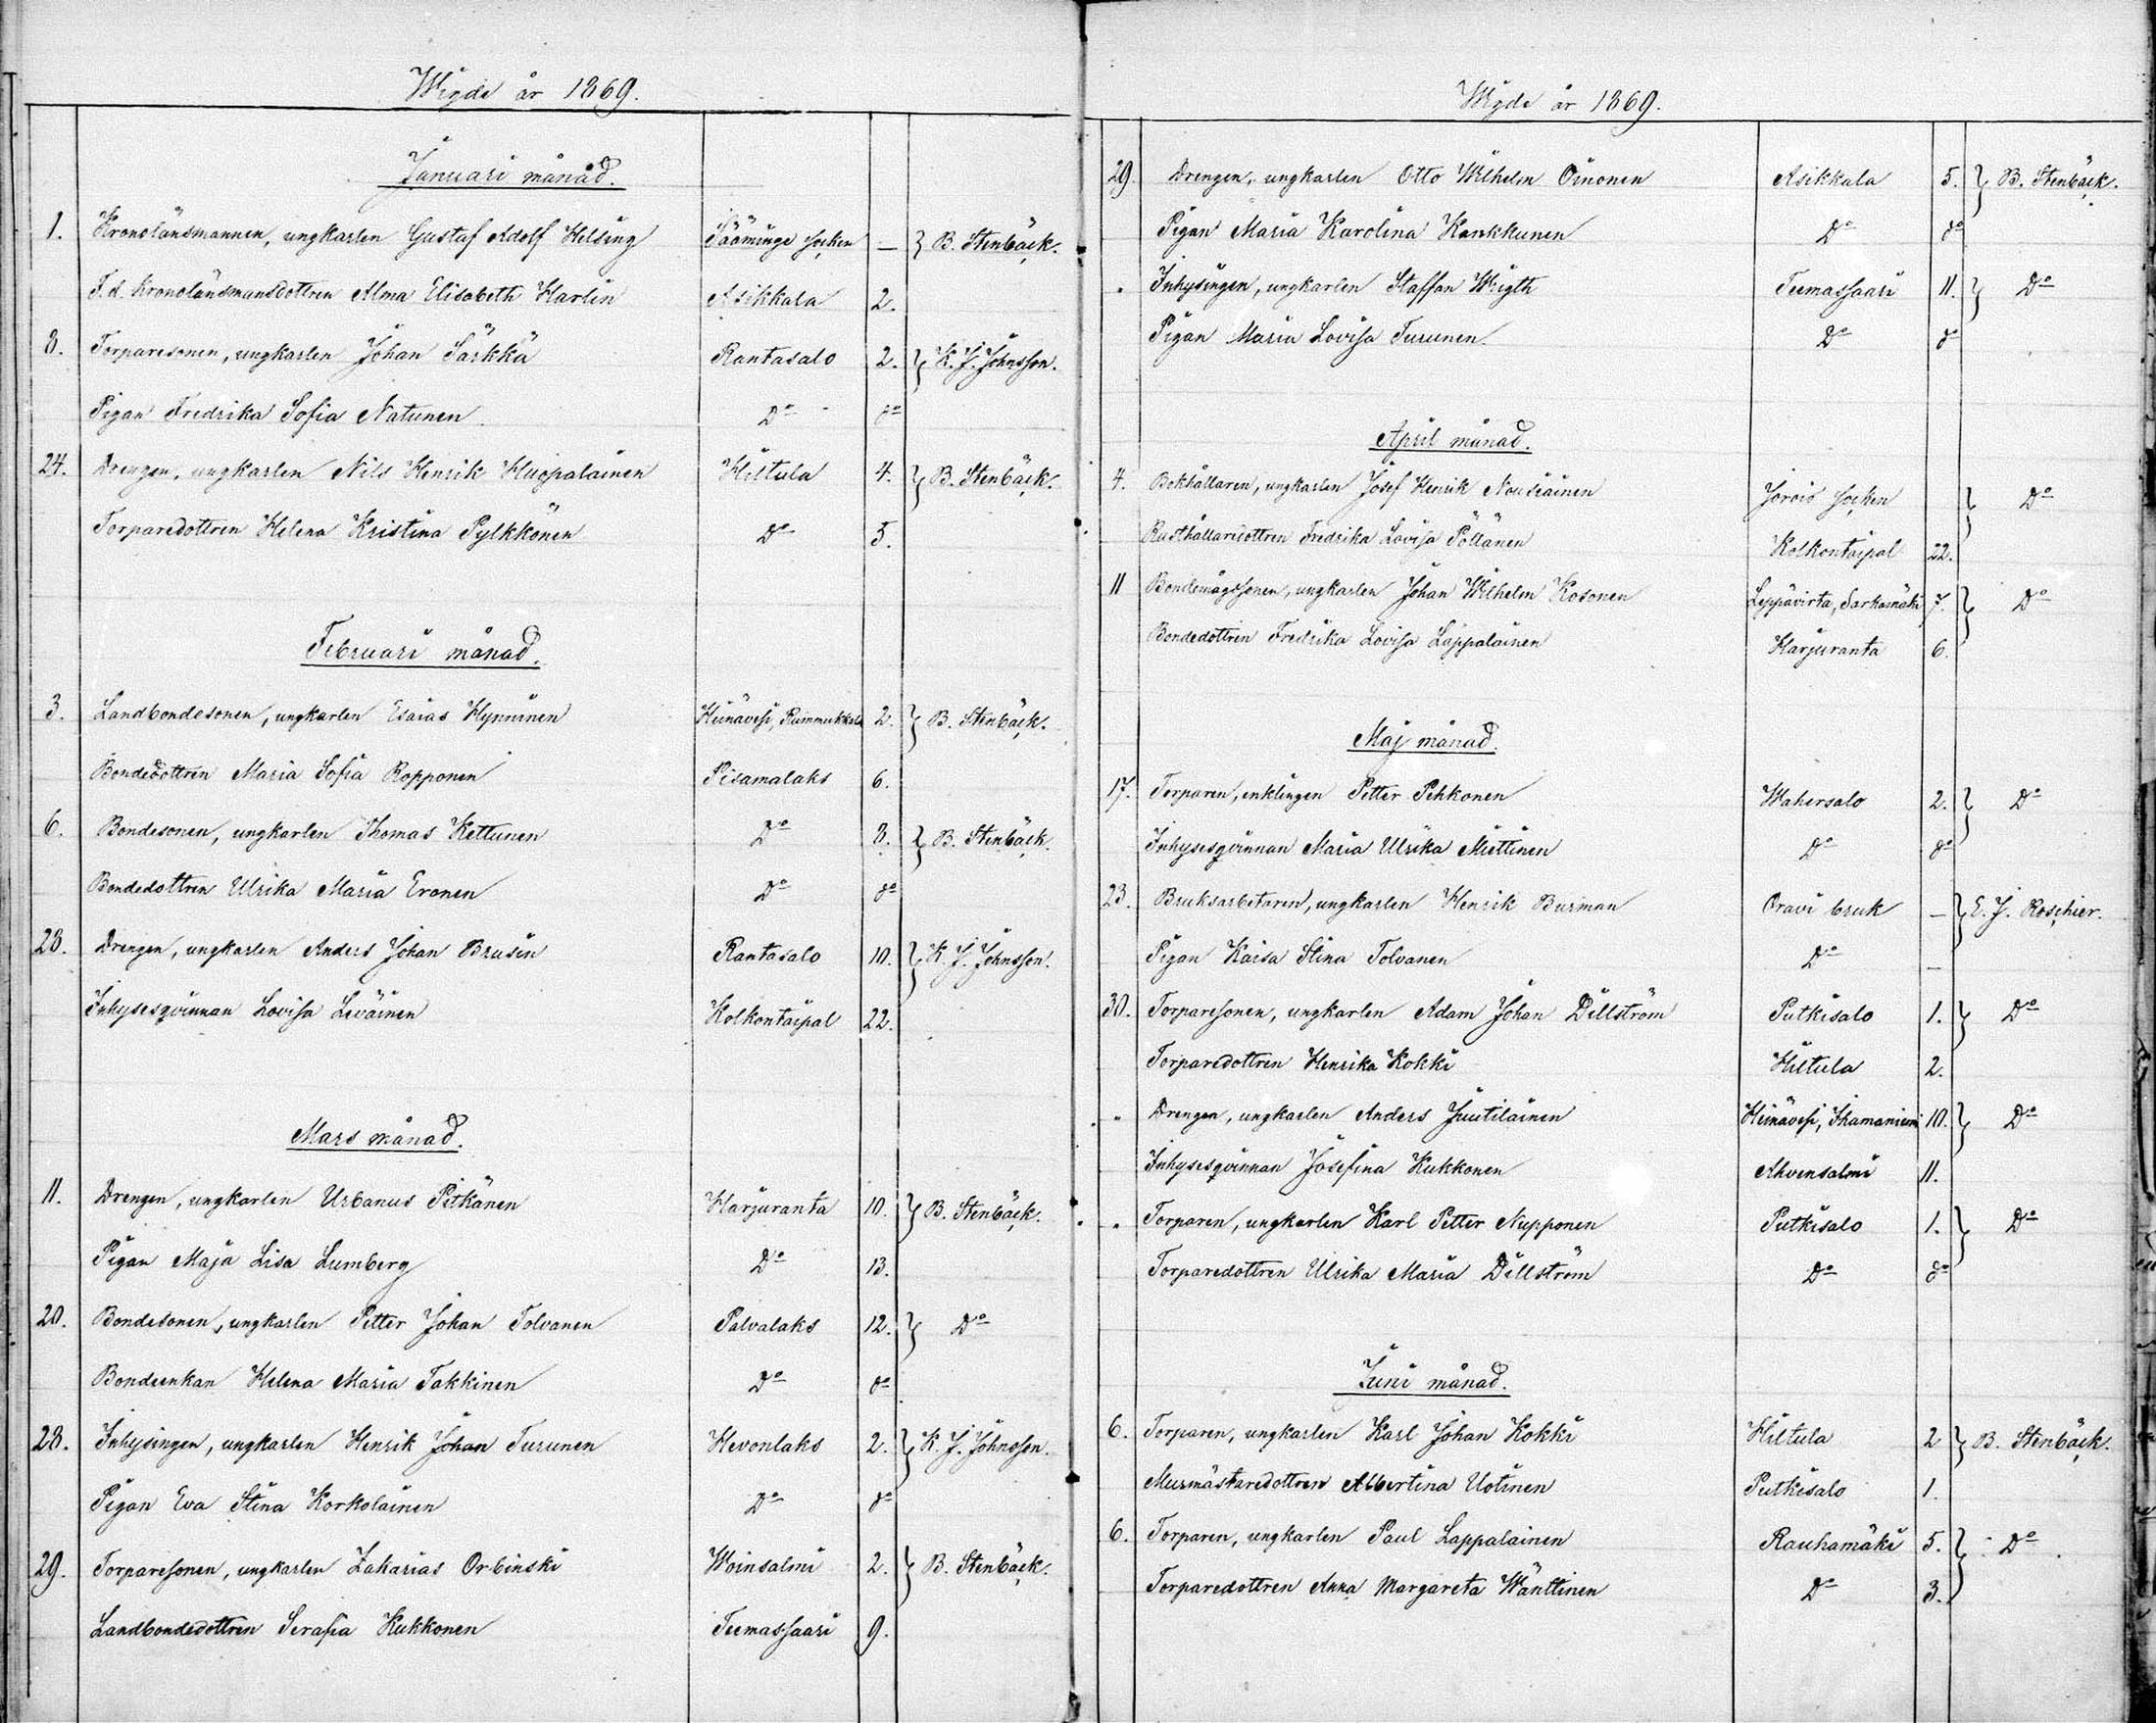 Wigde år 1869.
Januari månad.
1. Kronolänsmannen, ungkarlen Gustaf Adolf Helsing Sääminge socken — } B. Stenbäck.
F. d. Kronolänsmansdottren Alma Elisabeth Harlin Asikkala 2.
8. Torparesonen, ungkarlen Johan Särkkä Rantasalo 2. } K. J. Johnsson.
Pigan Fredrika Sofia Natunen Do do
24. Drengen, ungkarlen Nils Henrik Huopalainen Hiltula 4. } B. Stenbäck.
Torparedottren Helena Kristina Pylkkönen Do 5.
Februari månad.
3. Landbondesonen, ungkarlen Esaias Hynninen Heinävesi, Rummukkala 2. } B. Stenbäck.
Bondedottren Maria Sofia Ropponen Pisamalaks 6.
6. Bondesonen, ungkarlen Thomas Kettunen Do 8. } B. Stenbäck.
Bondedottren Ulrika Maria Eronen Do do
28. Drengen, ungkarlen Anders Johan Brusin Rantasalo 10. } K. J. Johnsson.
Inhysesqvinnan Lovisa Leväinen Kolkontaipal 22.
Mars månad.
11. Drengen, ungkarlen Urbanus Pitkänen Harjuranta 10. } B. Stenbäck.
Pigan Maja Lisa Lumberg Do 13.
20. Bondesonen, ungkarlen Petter Johan Tolvanen Palvalaks 12. } Do
Bondeenkan Helena Maria Takkinen Do do
28. Inhysingen, ungkarlen Henrik Johan Turunen Hevonlaks 2. } K. J. Johnsson.
Pigan Eva Stina Korkolainen Do do
29. Torparesonen, ungkarlen Zakarias Orbinski Woinsalmi 2. } B. Stenbäck.
Landbondedottren Serafia Kukkonen Teemassaari 9.
Wigde år 1869.
29. Drengen, ungkarlen Otto Wilhelm Oinonen Asikkala 5. } B. Stenbäck.
Pigan Maria Karolina Kankkunen Do do
" Inhysingen, ungkarlen Staffan Wigth Teemassaari 11. } Do
Pigan Maria Lovisa Turunen Do do
April månad.
4. Bokhållaren, ungkarlen Josef Henrik Nousiainen Jorois socken } Do
Rusthållaredottren Fredrika Lovisa Pöllänen Kolkontaipal 22.
11 Bondemågssonen, ungkarlen Johan Wilhelm Kosonen Leppävirta, Sarkamäki 7. } Do
Bondedottren Fredrika Lovisa Lappalainen Harjuranta 6.
Maj månad.
17. Torparen, enklingen Petter Pehkonen Wahersalo 2. } Do
Inhysesqvinnan Maria Ulrika Miettinen Do do
23. Bruksarbetaren, ungkarlen Henrik Burman Oravi bruk — } E. J. Roschier.
Pigan Kaisa Stina Tolvanen Do —
30. Torparesonen, ungkarlen Adam Johan Dillström Putkisalo 1. } Do
Torparedottren Henrika Kokki Hiltula 2.
" Drengen, ungkarlen Anders Juutilainen Heinävesi, Ihamaniemi 10. } Do
Inhysesqvinnan Josefina Kukkonen Ahvensalmi 11.
" Torparen, ungkarlen Karl Petter Nupponen Putkisalo 1. } Do
Torparedottren Ulrika Maria Dillström Do do
Juni månad.
6. Torparen, ungkarlen Karl Johan Kokki Hiltula 2 } B. Stenbäck.
Murmästaredottren Albertina Uotinen Putkisalo 1.
6. Torparen, ungkarlen Paul Lappalainen Rauhamäki 5. } Do
Torparedottren Anna Margareta Wänttinen Do 3.